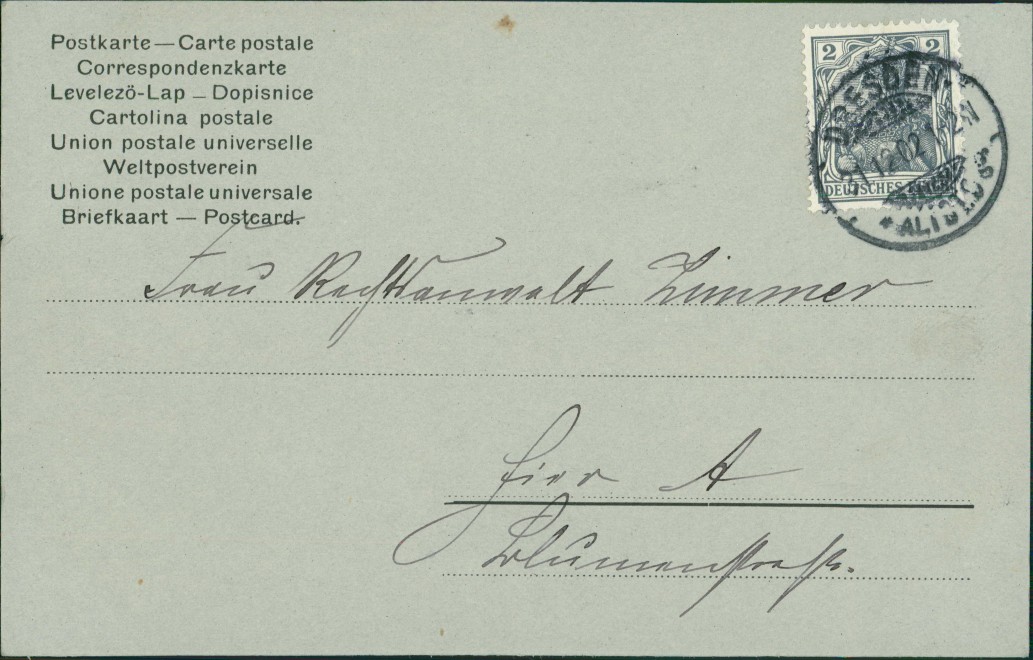 Postkarte — Carte postale
Correspondenzkarte
Levelezö-Lap — Dopisnice
Cartolina postale
Union postale universelle
Weltpostverein
Unione postale universale
Briefkaart — Postcard.
2 2
DEUTSCHES REICH
DRESDEN
31.12.02
* ALTST.
Frau Rechtsanwalt Zimmer
Hier A
Blumenstraße.